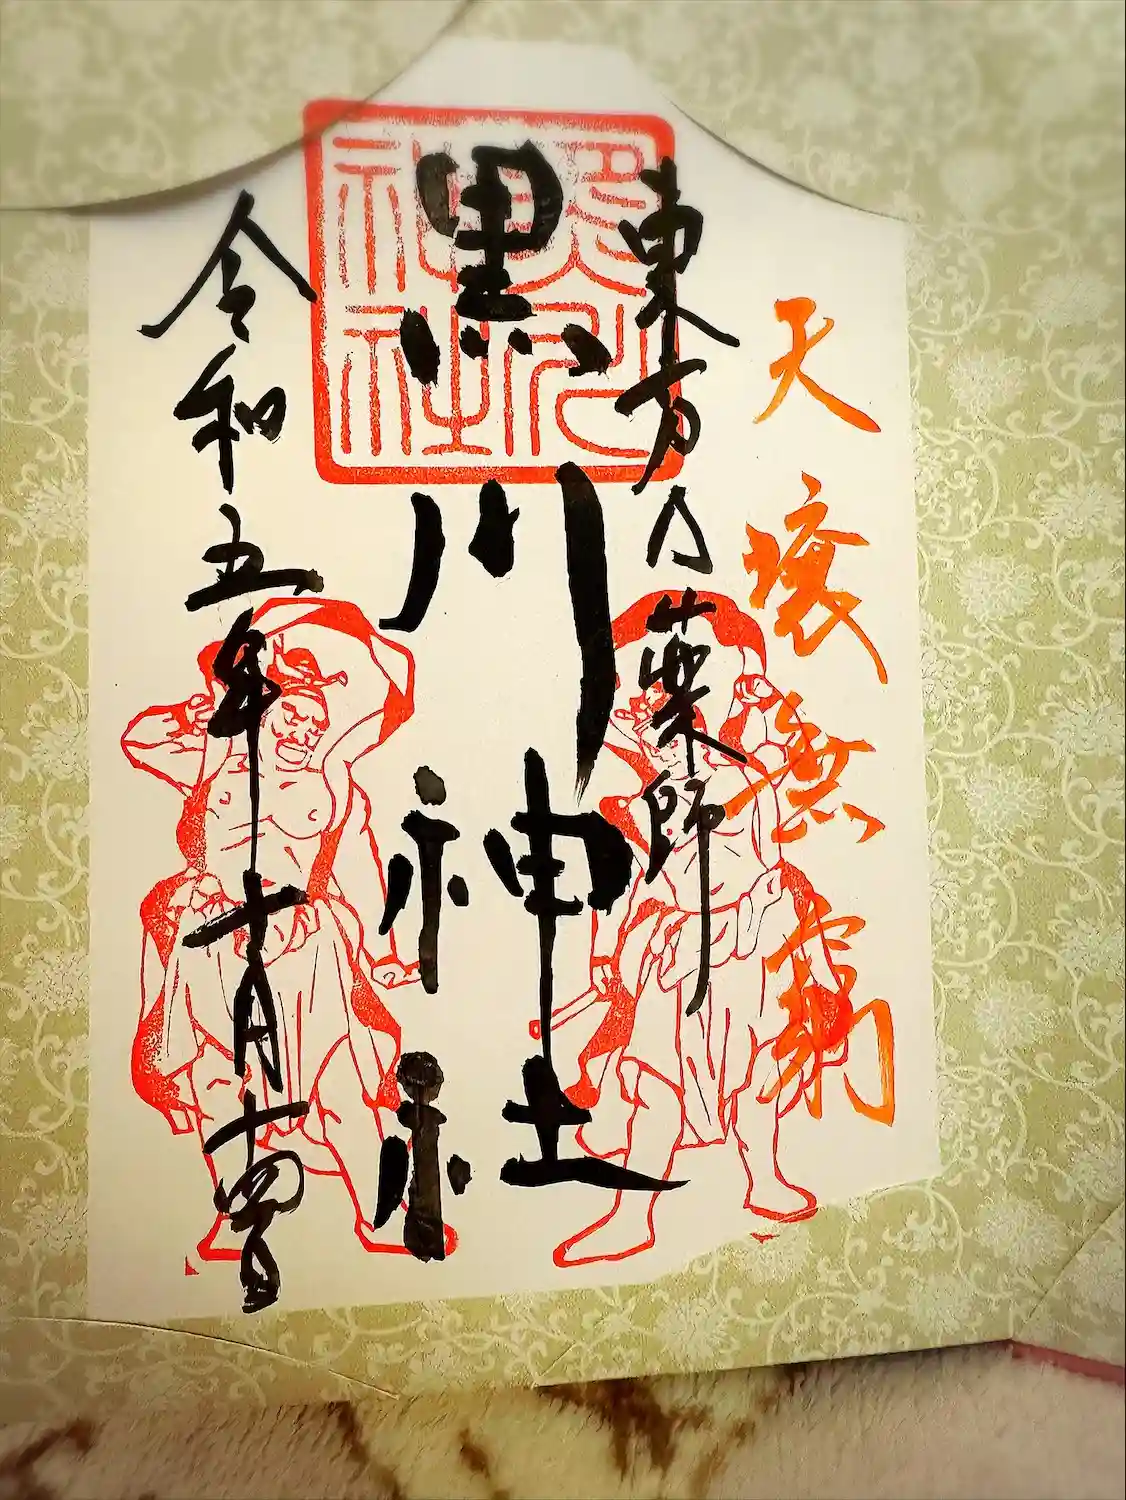 天壌無窮
東方乃薬師
黒川神社
令和五年十月十四日
黒川神社